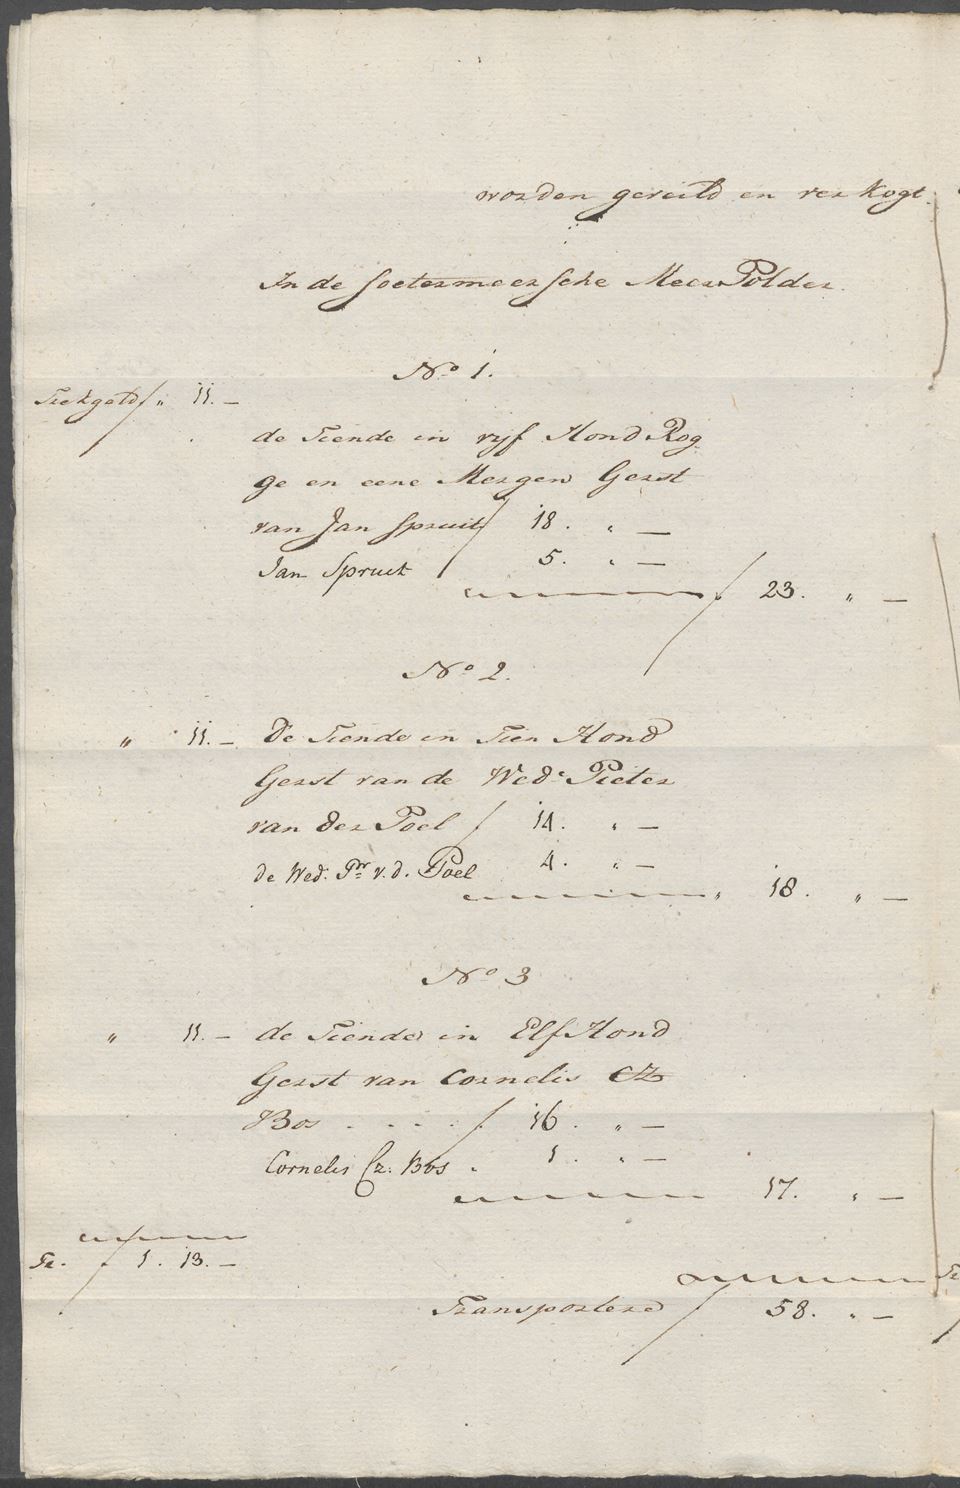 worden geveild en verkogt.
In de soetermeersche Meer Polder.
No. 1.
Trekgeld ƒ „ 11. —
de Tiende in vijf Hond Rog
ge en eene Mergen Gerst
van Jan Spruit ƒ 18. „ —
Jan Spruit 5. „ —
ƒ 23. „ —
No. 2.
„ 11. — De Tiende in Tien Hond
Gerst van de Wede. Pieter
van der Poel ƒ 14. „ —
de Wed. Pr. v. d. Poel 4. „ —
„ 18. „ —
No. 3
„ 11. — de Tiende in Elf Hond
Gerst van Cornelis CZ
Bos . . . . ƒ 16. „ —
Cornelis Cz. Bos . 1. „ —
17. „ —
Tr. ƒ 1. 13. —
Transportere ƒ 58. „ —